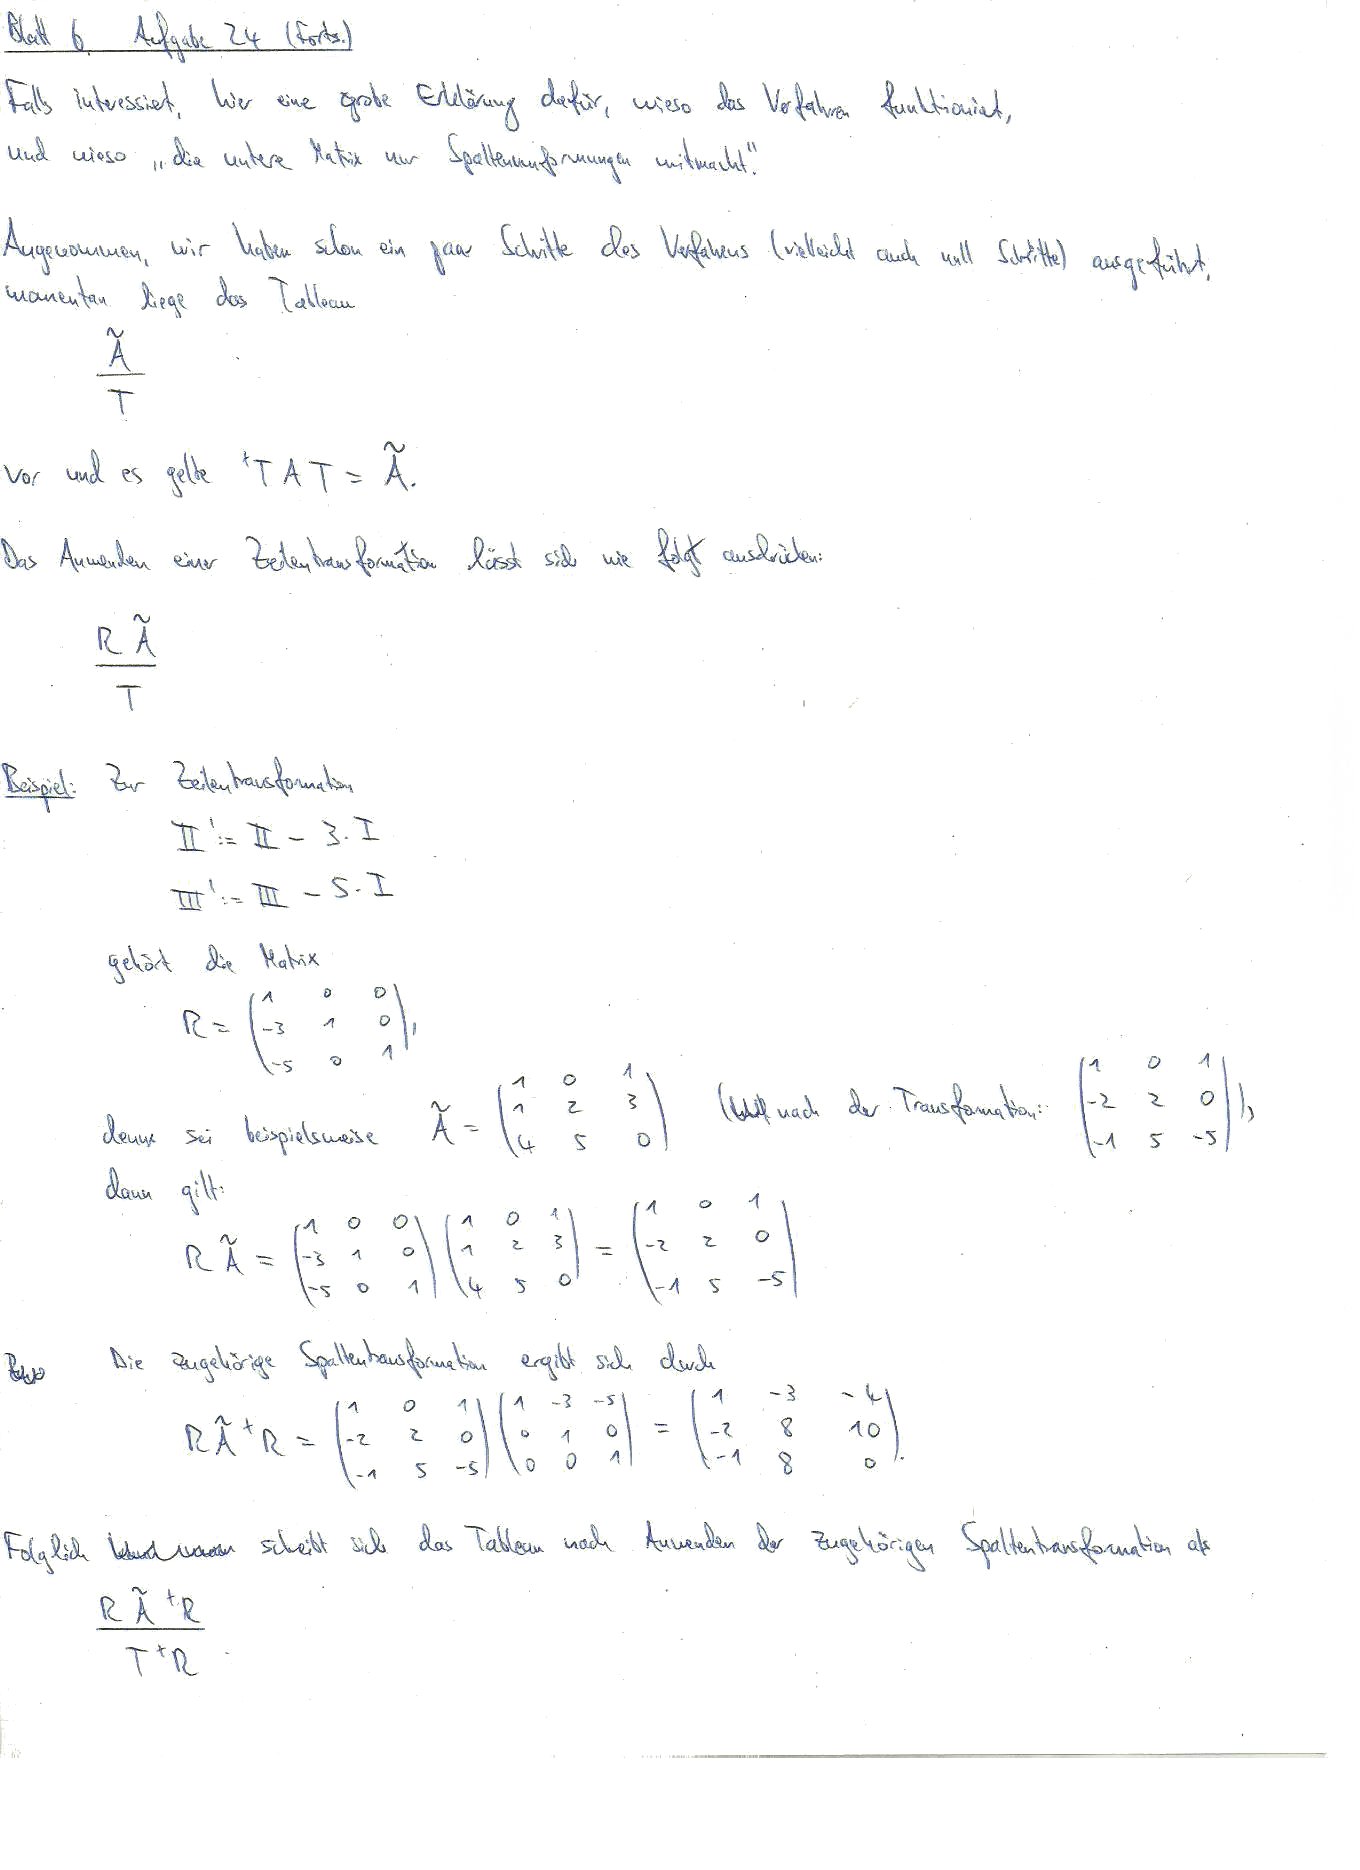 Blatt 6, Aufgabe 24 (Forts.)
Falls interessiert, hier eine grobe Erklärung dafür, wieso das Verfahren funktioniert,
und wieso „die untere Matrix nur Spaltenumformungen mitmacht".
Angenommen, wir haben schon ein paar Schritte des Verfahrens (vielleicht auch null Schritte) ausgeführt,
momentan liege das Tableau
Ã
T
vor und es gelte ᵗT A T = Ã.
Das Anwenden einer Zeilentransformation lässt sich wie folgt ausdrücken:
R Ã
T
Beispiel: Zur Zeilentransformation
II' := II - 3·I
III' := III - 5·I
gehört die Matrix
R = (1 0 0
-3 1 0
-5 0 1),
denn sei beispielsweise Ã = (1 0 1
1 2 3
4 5 0) (nach der Transformation: (1 0 1
-2 2 0
-1 5 -5)),
dann gilt:
R Ã = (1 0 0
-3 1 0
-5 0 1) (1 0 1
1 2 3
4 5 0) = (1 0 1
-2 2 0
-1 5 -5)
Die zugehörige Spaltentransformation ergibt sich durch
R Ã ᵗR = (1 0 1
-2 2 0
-1 5 -5) (1 -3 -5
0 1 0
0 0 1) = (1 -3 -4
-2 8 10
-1 8 0).
Folglich schreibt sich das Tableau nach Anwenden der zugehörigen Spaltentransformation als
R Ã ᵗR
T ᵗR